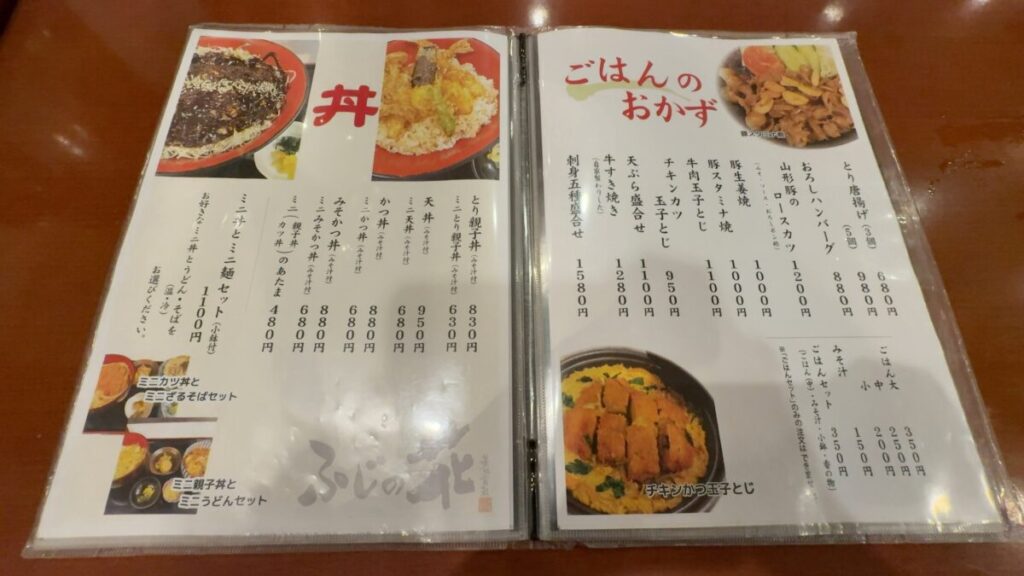 丼
とり親子丼(みそ汁付) 830円
ミニとり親子丼(みそ汁付) 630円
天丼(みそ汁付) 950円
ミニ天丼(みそ汁付) 680円
かつ丼(みそ汁付) 880円
ミニかつ丼(みそ汁付) 680円
みそかつ丼(みそ汁付) 880円
ミニみそかつ丼(みそ汁付) 680円
ミニ(親子丼 カツ丼)のあたま 480円
ミニ丼とミニ麺セット(小鉢付) 1100円
お好きなミニ丼とうどん・そばを(温・冷)
お選びください。
ミニカツ丼と
ミニざるそばセット
ミニ親子丼と
ミニうどんセット
ふじの花
ごはんの
おかず
豚スタミナ焼
とり唐揚げ(3個) 680円
(5個) 980円
おろしハンバーグ 880円
山形豚の
ロースカツ 1200円
豚生姜焼 1000円
豚スタミナ焼 1000円
牛肉玉子とじ 1100円
チキンカツ
玉子とじ 950円
天ぷら盛合せ 1100円
牛すき焼き 1280円
刺身五種盛合せ 1580円
ごはん大 350円
中 250円
小 200円
みそ汁 150円
ごはんセット 350円
(ごはん(中)・みそ汁・小鉢・香の物)
チキンかつ玉子とじ